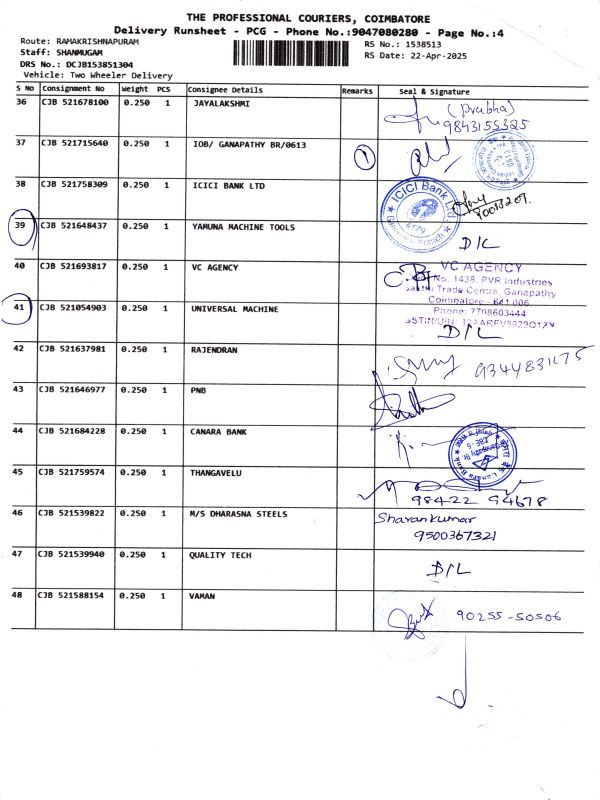 THE PROFESSIONAL COURIERS, COIMBATORE
Delivery Runsheet - PCG - Phone No.:9047080280 - Page No.:4
Route: RAMAKRISHNAPURAM
Staff: SHANMUGAM
DRS No.: DCJB153851304
Vehicle: Two Wheeler Delivery
RS No.: 1538513
RS Date: 22-Apr-2025
S NO Consignment No Weight PCS Consignee Details Remarks Seal & Signature
36 CJB 521678100 0.250 1 JAYALAKSHMI (Prabha)
9843155325
37 CJB 521715640 0.250 1 IOB/ GANAPATHY BR/0613 1
38 CJB 521758309 0.250 1 ICICI BANK LTD
ICICI Bank Ltd
Branch
39 CJB 521648437 0.250 1 YAMUNA MACHINE TOOLS D/L
40 CJB 521693817 0.250 1 VC AGENCY VC AGENCY
No: 1438, PVR Industries
Trade Centre, Ganapathy
Coimbatore - 641 006
Phone: 7708603444
41 CJB 521054903 0.250 1 UNIVERSAL MACHINE D/L
42 CJB 521637981 0.250 1 RAJENDRAN
43 CJB 521646977 0.250 1 PNB
44 CJB 521684228 0.250 1 CANARA BANK
Canara Bank
45 CJB 521759574 0.250 1 THANGAVELU
98422 94678
46 CJB 521539822 0.250 1 M/S DHARASNA STEELS Sharankumar
9500367321
47 CJB 521539940 0.250 1 QUALITY TECH D/L
48 CJB 521588154 0.250 1 VAMAN 90255-50506